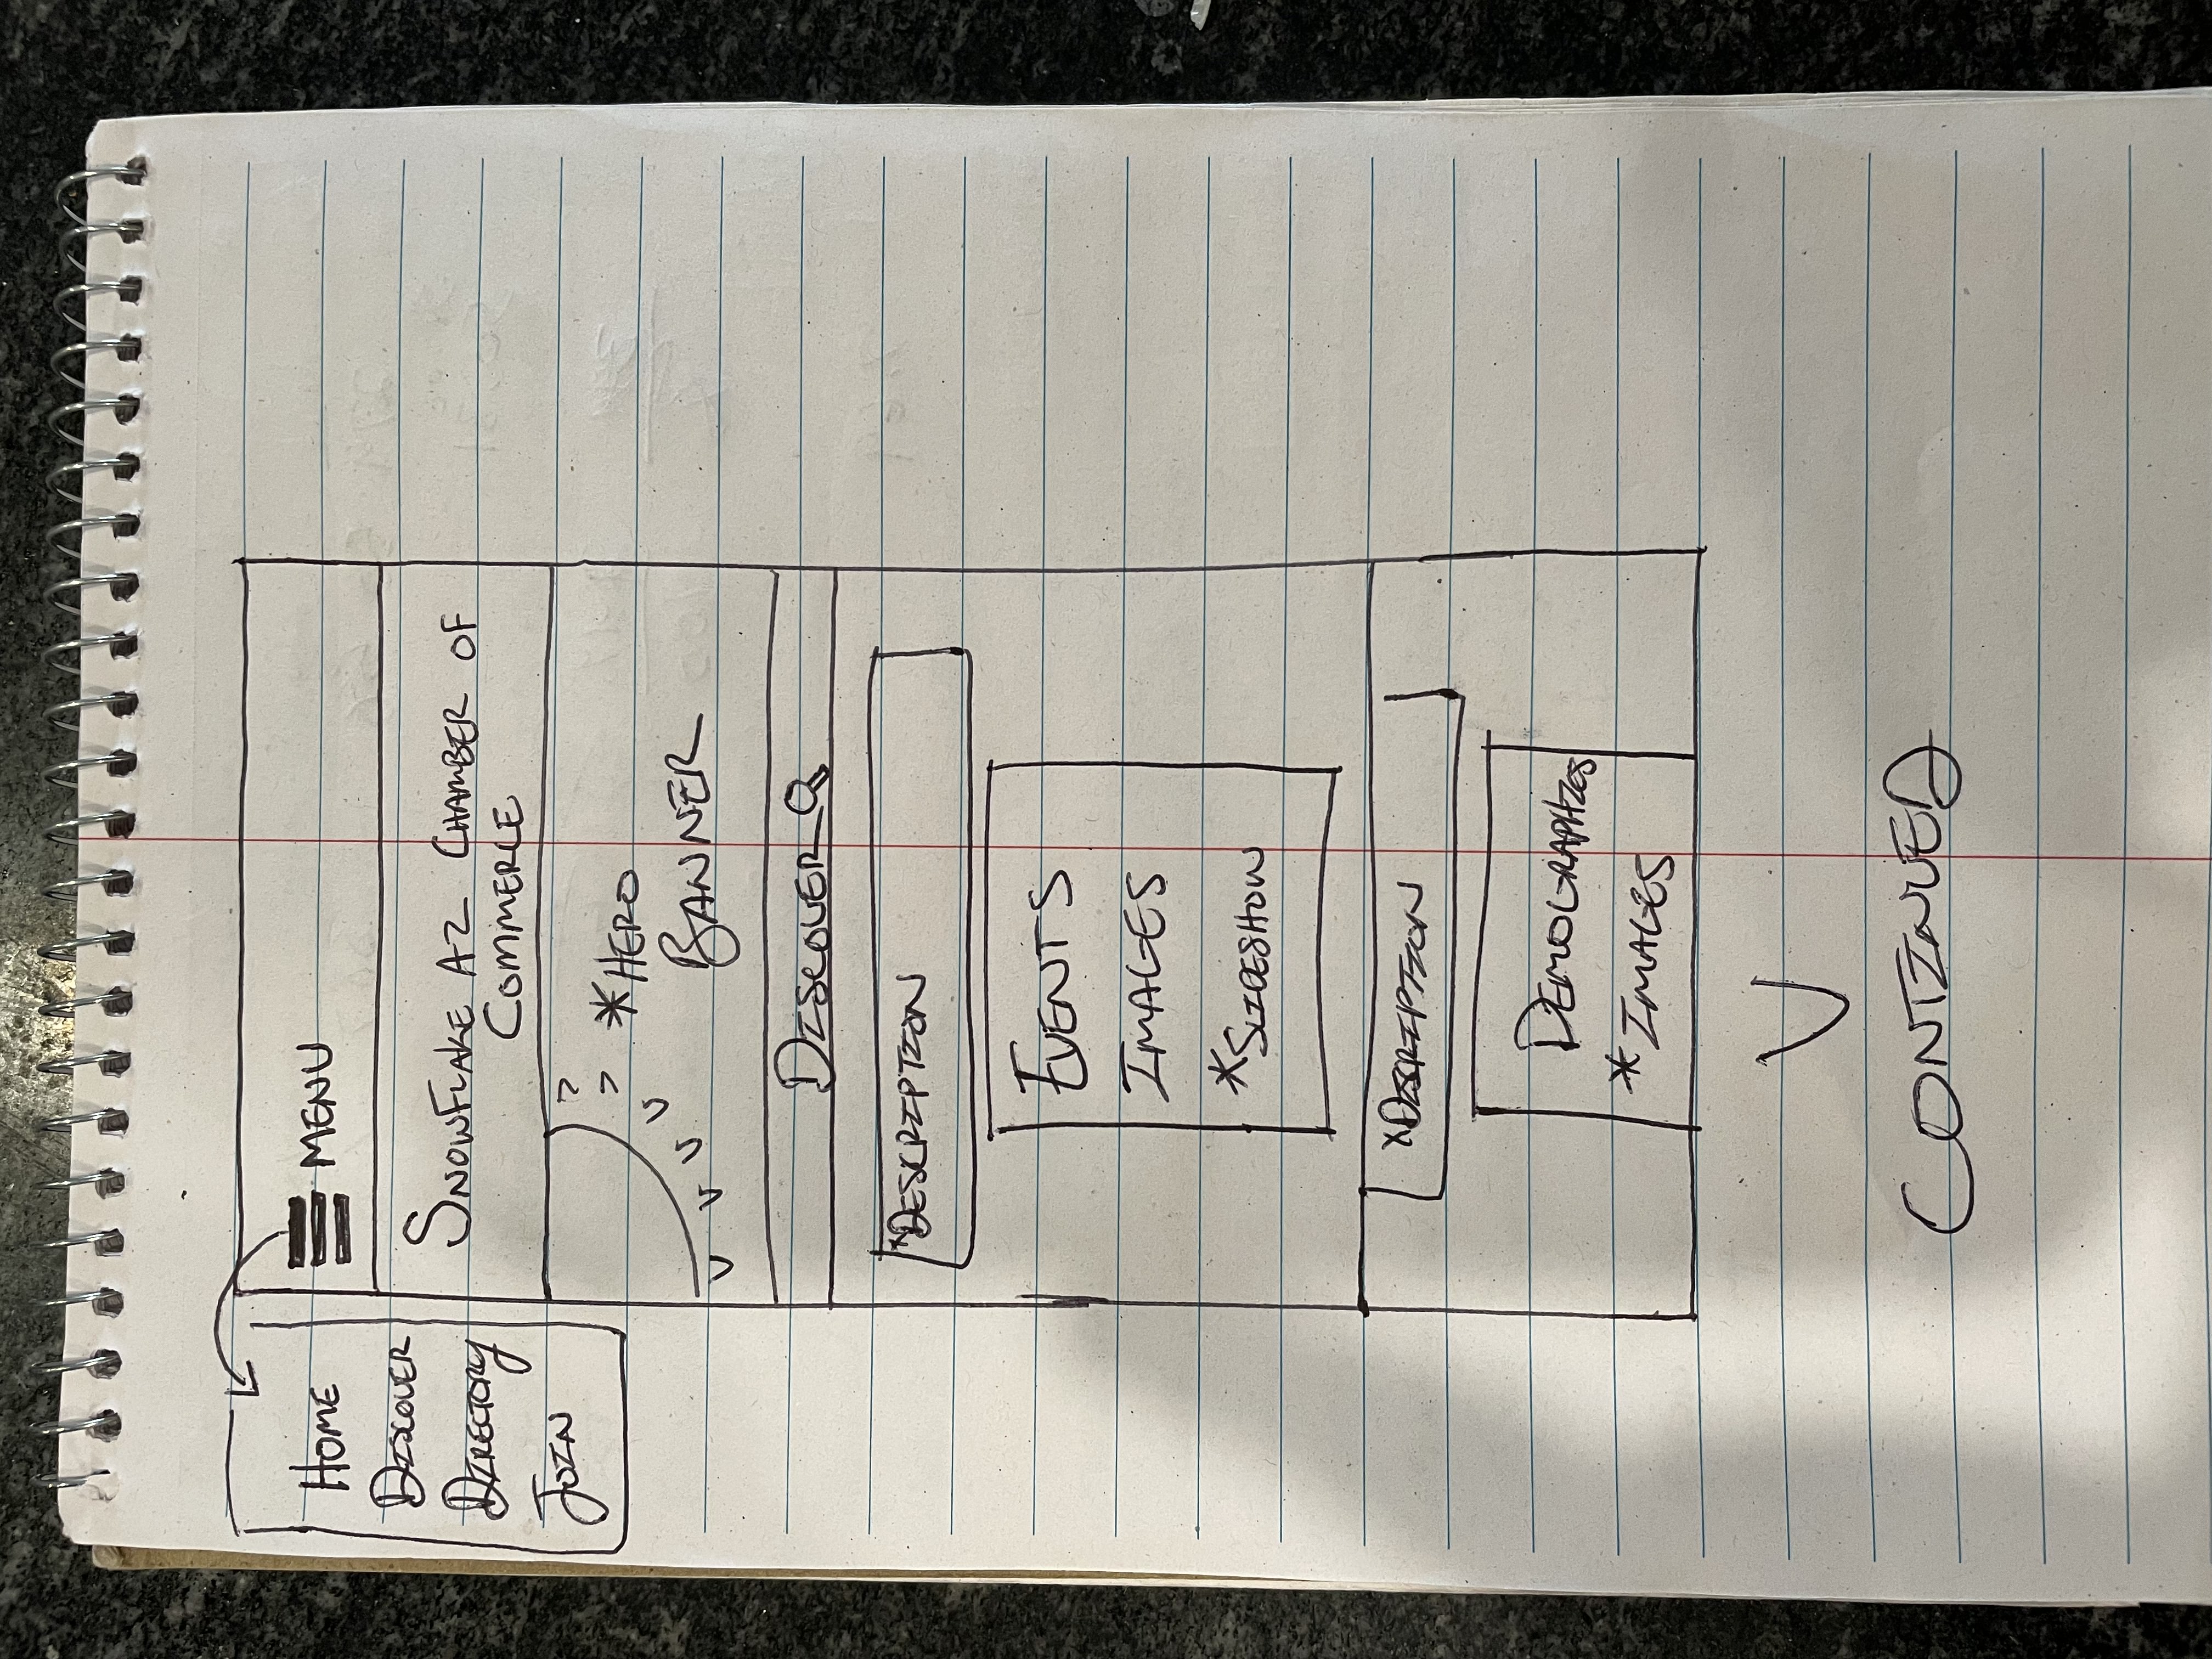 MENU
HOME
DISCOVER
DIRECTORY
JOIN
SNOWFLAKE AZ CHAMBER OF
COMMERCE
*HERO
BANNER
DISCOVER
*DESCRIPTION
EVENTS
IMAGES
*SLIDESHOW
*DISCRIPTION
DEMOGRAPHICS
*IMAGES
CONTINUED